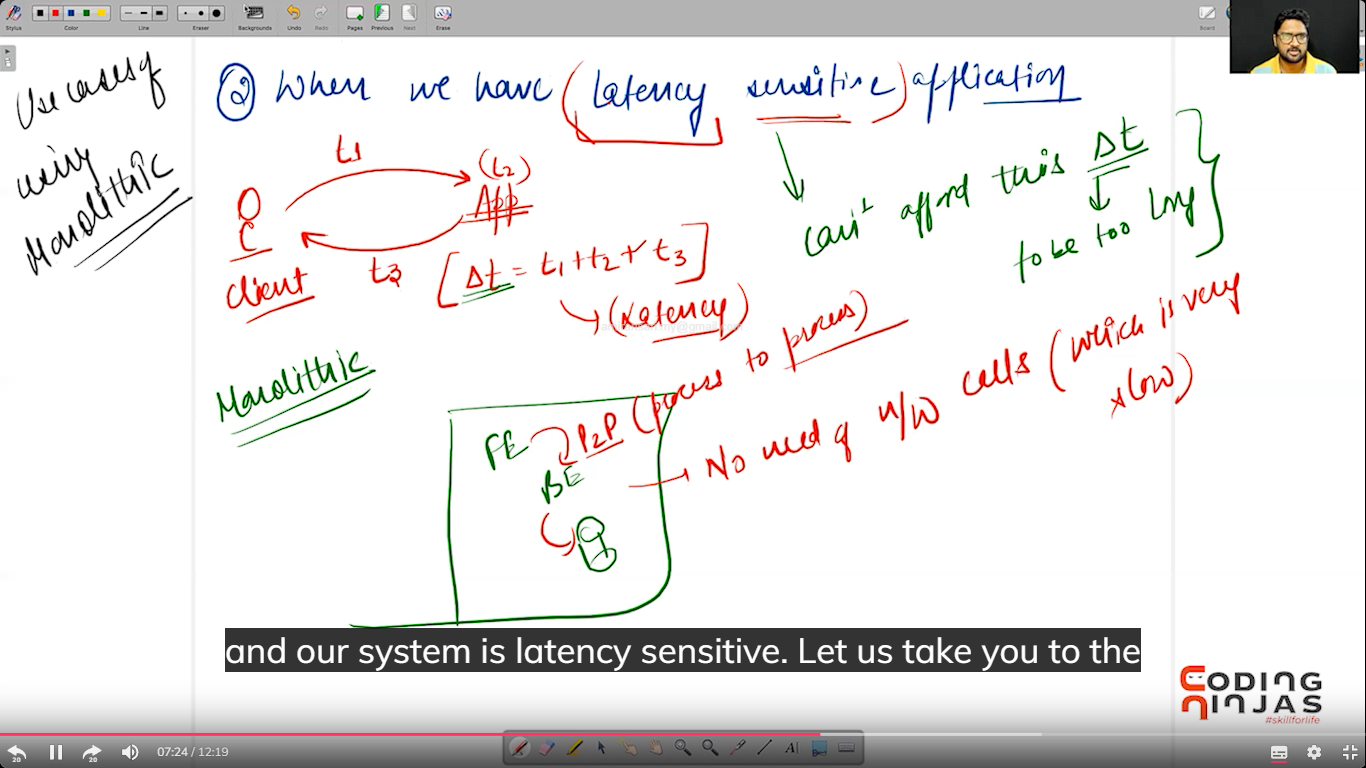 Stylus
Color
Line
Eraser
Backgrounds
Undo
Redo
Pages
Previous
Next
Erase
Board
Use cases of
using
Monolithic
② When we have (latency sensitive) application
t1
(t2)
App
C
client
t3
[Δt = t1+t2+t3]
(Latency)
can't afford this Δt
to be too long
Monolithic
FE
P2P (process to process)
BE
No need of n/w calls (which is very
slow)
and our system is latency sensitive. Let us take you to the
CODING
NINJAS
#skillforlife
20
20
07:24 / 12:19
A